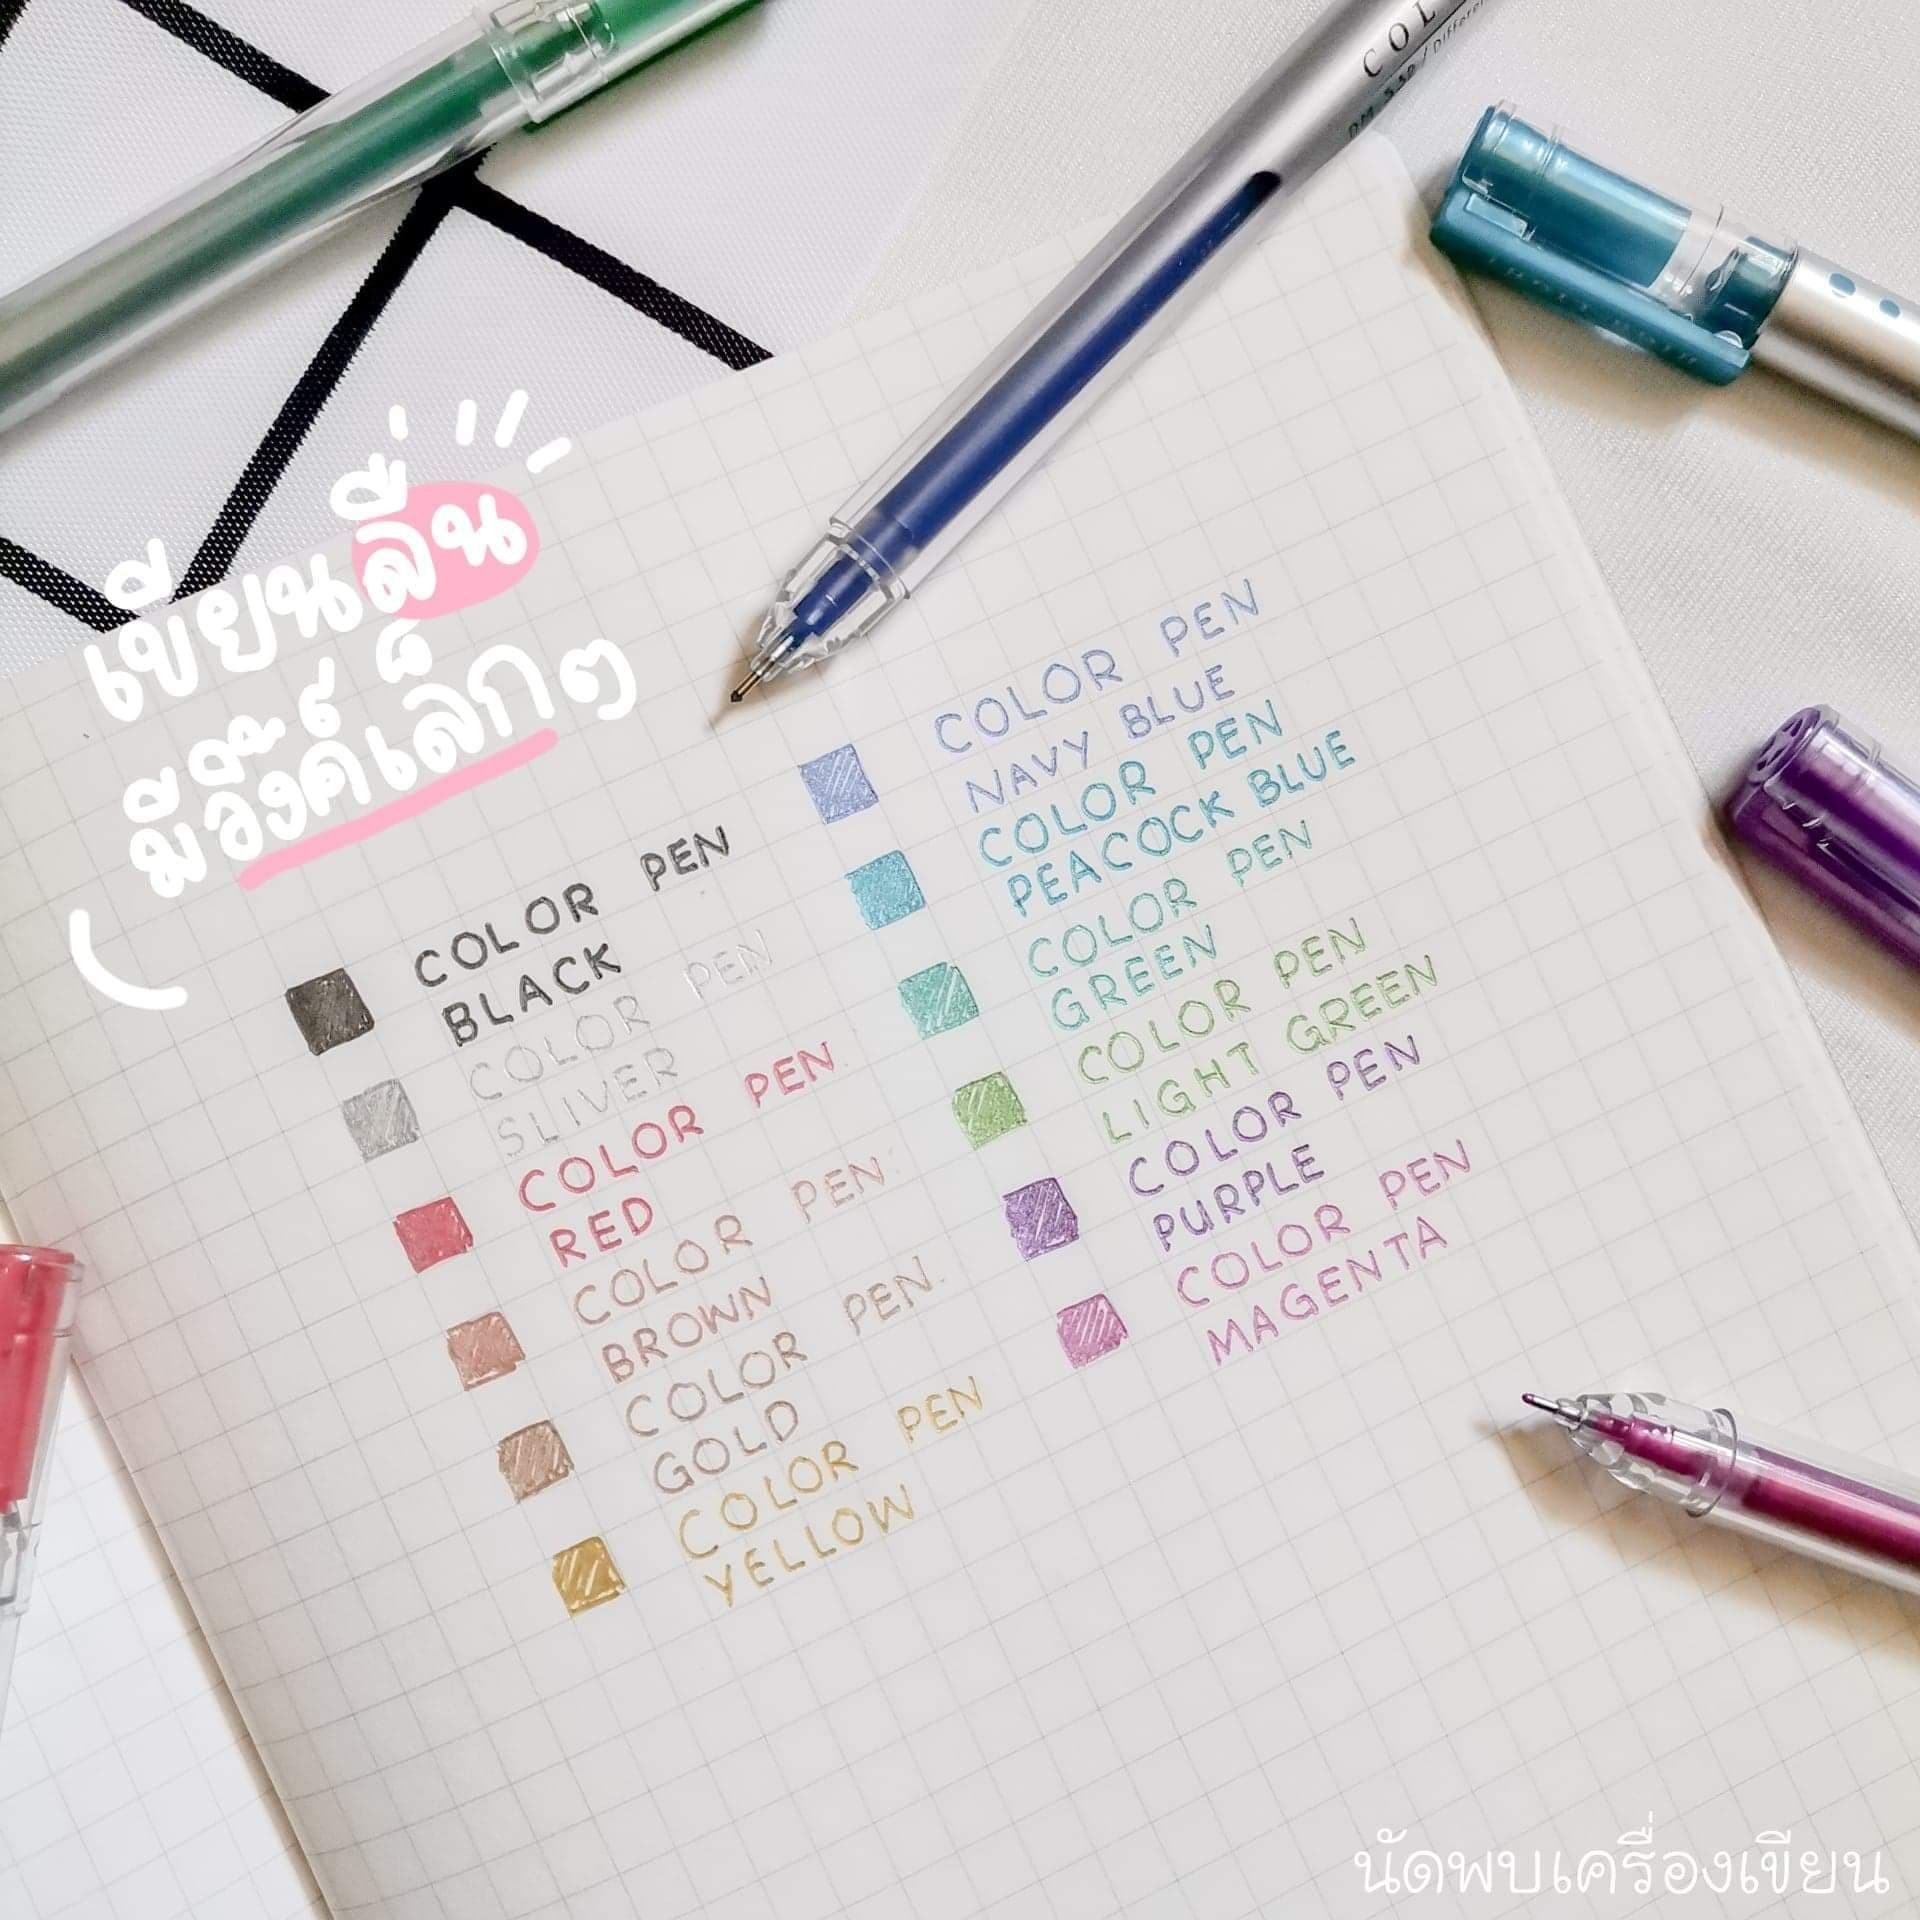 เขียนลื่น
มีวิ๊งค์เล็กๆ
COLOR PEN
BLACK
COLOR PEN
SLIVER
COLOR PEN
RED
COLOR PEN
BROWN
COLOR PEN
GOLD
COLOR PEN
YELLOW
COLOR PEN
NAVY BLUE
COLOR PEN
PEACOCK BLUE
COLOR PEN
GREEN
COLOR PEN
LIGHT GREEN
COLOR PEN
PURPLE
COLOR PEN
MAGENTA
นัดพบเครื่องเขียน